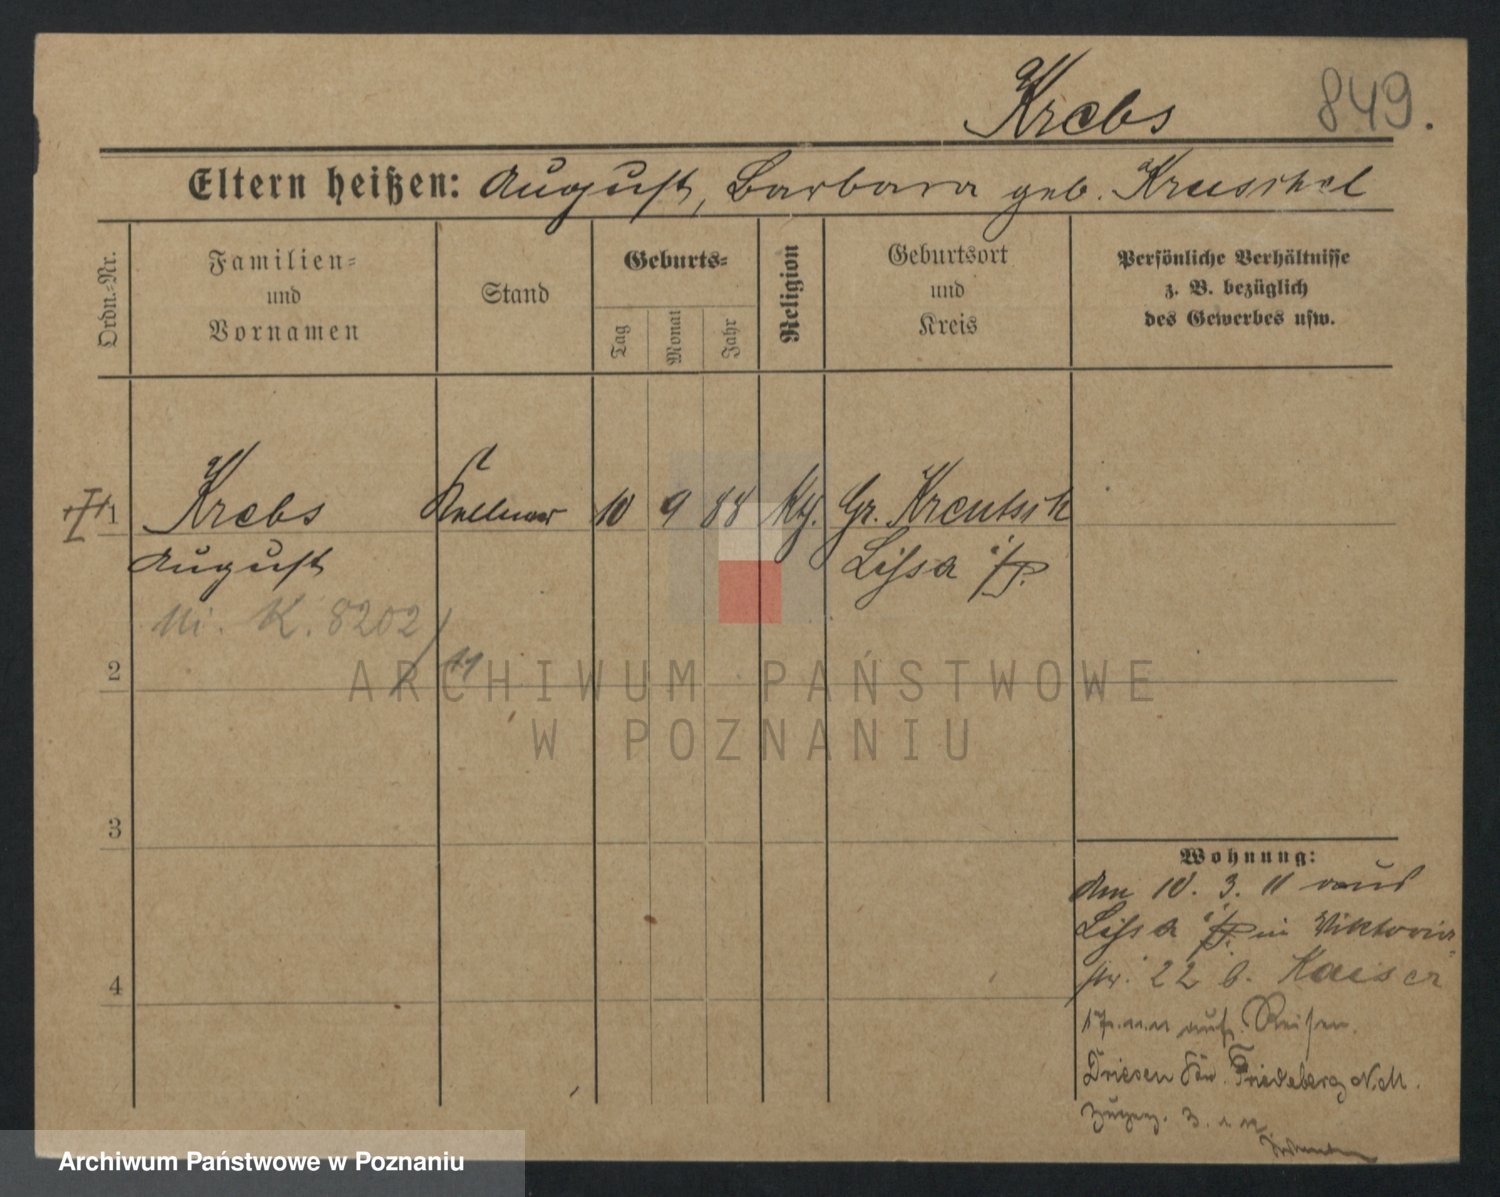 Krebs 849.
Eltern heißen: August, Barbara geb. Kruschel
Ordn.-Nr.
Familien-
und
Vornamen
Stand
Geburts-
Tag
Monat
Jahr
Religion
Geburtsort
und
Kreis
Persönliche Verhältnisse
z. B. bezüglich
des Gewerbes usw.
1 Krebs Kellner 10 9 88 Kth. Gr. Kreutsch
August Lissa i/P.
K. 8202/
11
2
ARCHIWUM PAŃSTWOWE
W POZNANIU
3
Wohnung:
Am 10. 3. 11 aus
Lissa i/P. in Viktoria-
str. 22 b. Kaiser
auf Reisen.
Driesen Kr. Friedeberg N.M.
4
Archiwum Państwowe w Poznaniu